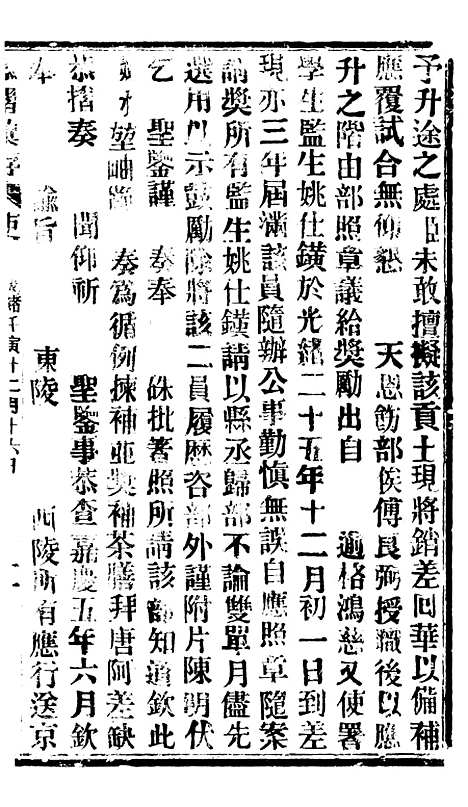 予升途之處臣未敢擅擬該貢士現將銷差回華以備補
應覆試合無仰懇 天恩飭部俟傅良弼授職後以應
升之階由部照章議給獎勵出自 逾格鴻慈又使署
學生監生姚仕鐄於光緒二十五年十二月初一日到差
現亦三年屆滿該員隨辦公事勤慎無誤自應照章隨案
請獎所有監生姚仕鐄請以縣丞歸部不論雙單月儘先
選用以示鼓勵除將該二員履歷咨部外謹附片陳明伏
乞 聖鑒謹 奏奉 硃批著照所請該部知道欽此
奏為循例揀補並獎補茶膳拜唐阿差缺
恭摺奏 聞仰祈 聖鑒事恭查嘉慶五年六月欽
奉 諭旨 東陵 西陵所有應行送京
光緒壬寅十二月十六日